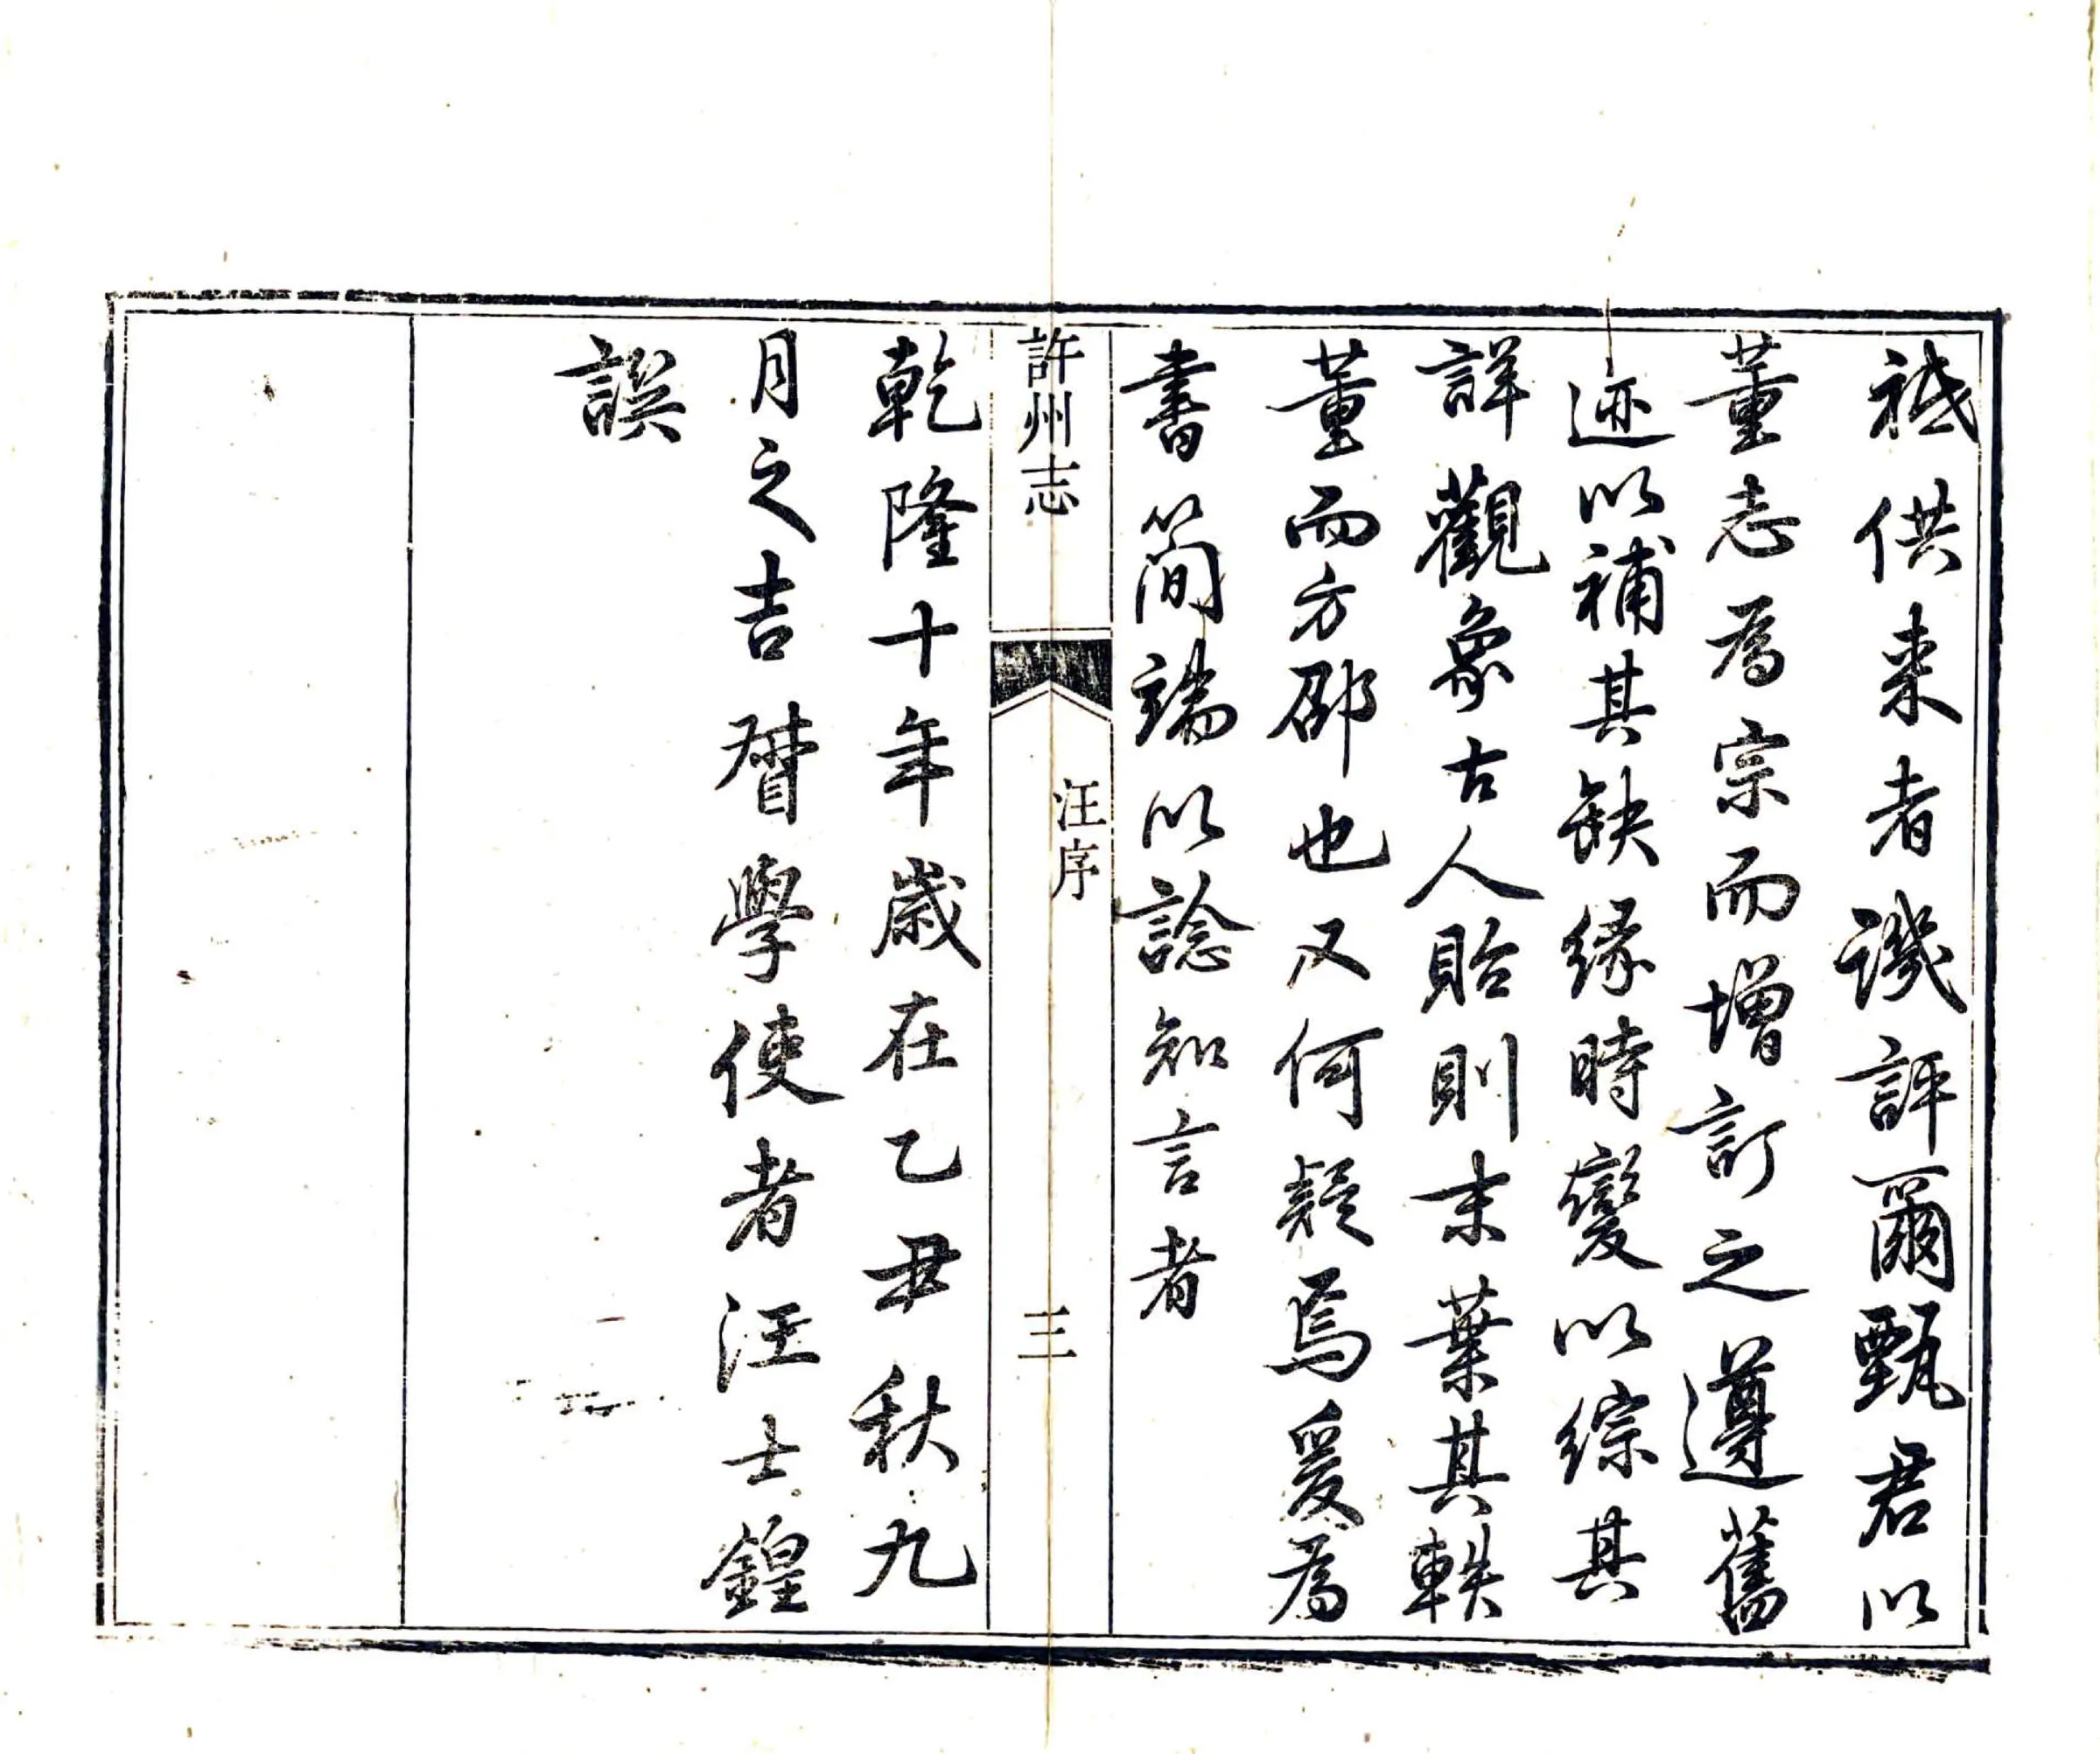 祗供来者譏評爾甄君以
董志為宗而增訂之遵舊
迹以補其缺緣時變以綜其
詳觀象古人貽則末葉其軼
董而方邵也又何疑焉爰為
書簡端以諗知言者
許州志
汪序
三
乾隆十年歲在乙丑秋九
月之吉督學使者汪士鍠
譔